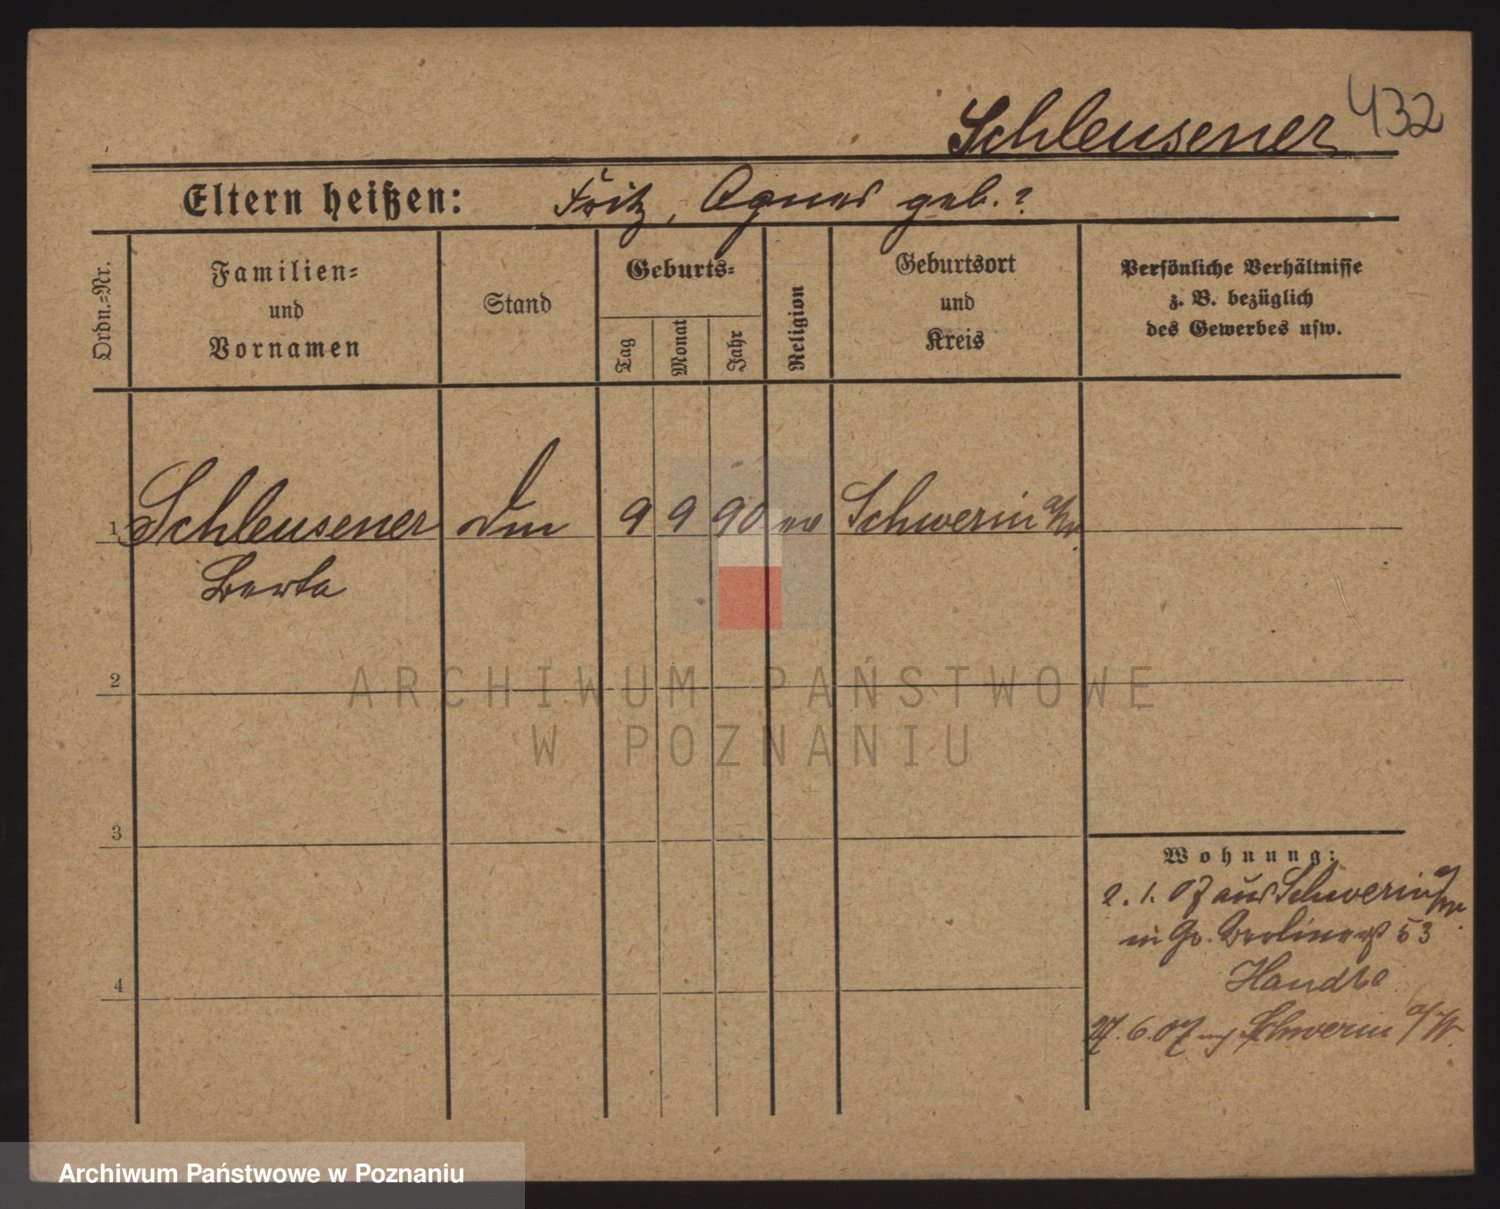 Schleusener 432
Eltern heißen: Fritz, Agnes geb. ?
Ordn.=Nr.
Familien=
und
Vornamen
Stand
Geburts=
Tag
Monat
Jahr
Religion
Geburtsort
und
Kreis
Persönliche Verhältnisse
z. B. bezüglich
des Gewerbes usw.
1 Schleusener 9 9 90 ev Schwerin a/W.
Berta
2
3
4
Wohnung:
2. 1. 07 aus Schwerin a/W.
in Gr. Berlinerst 53
27. 6. 07 Schwerin a/W.
ARCHIWUM PAŃSTWOWE
W POZNANIU
Archiwum Państwowe w Poznaniu